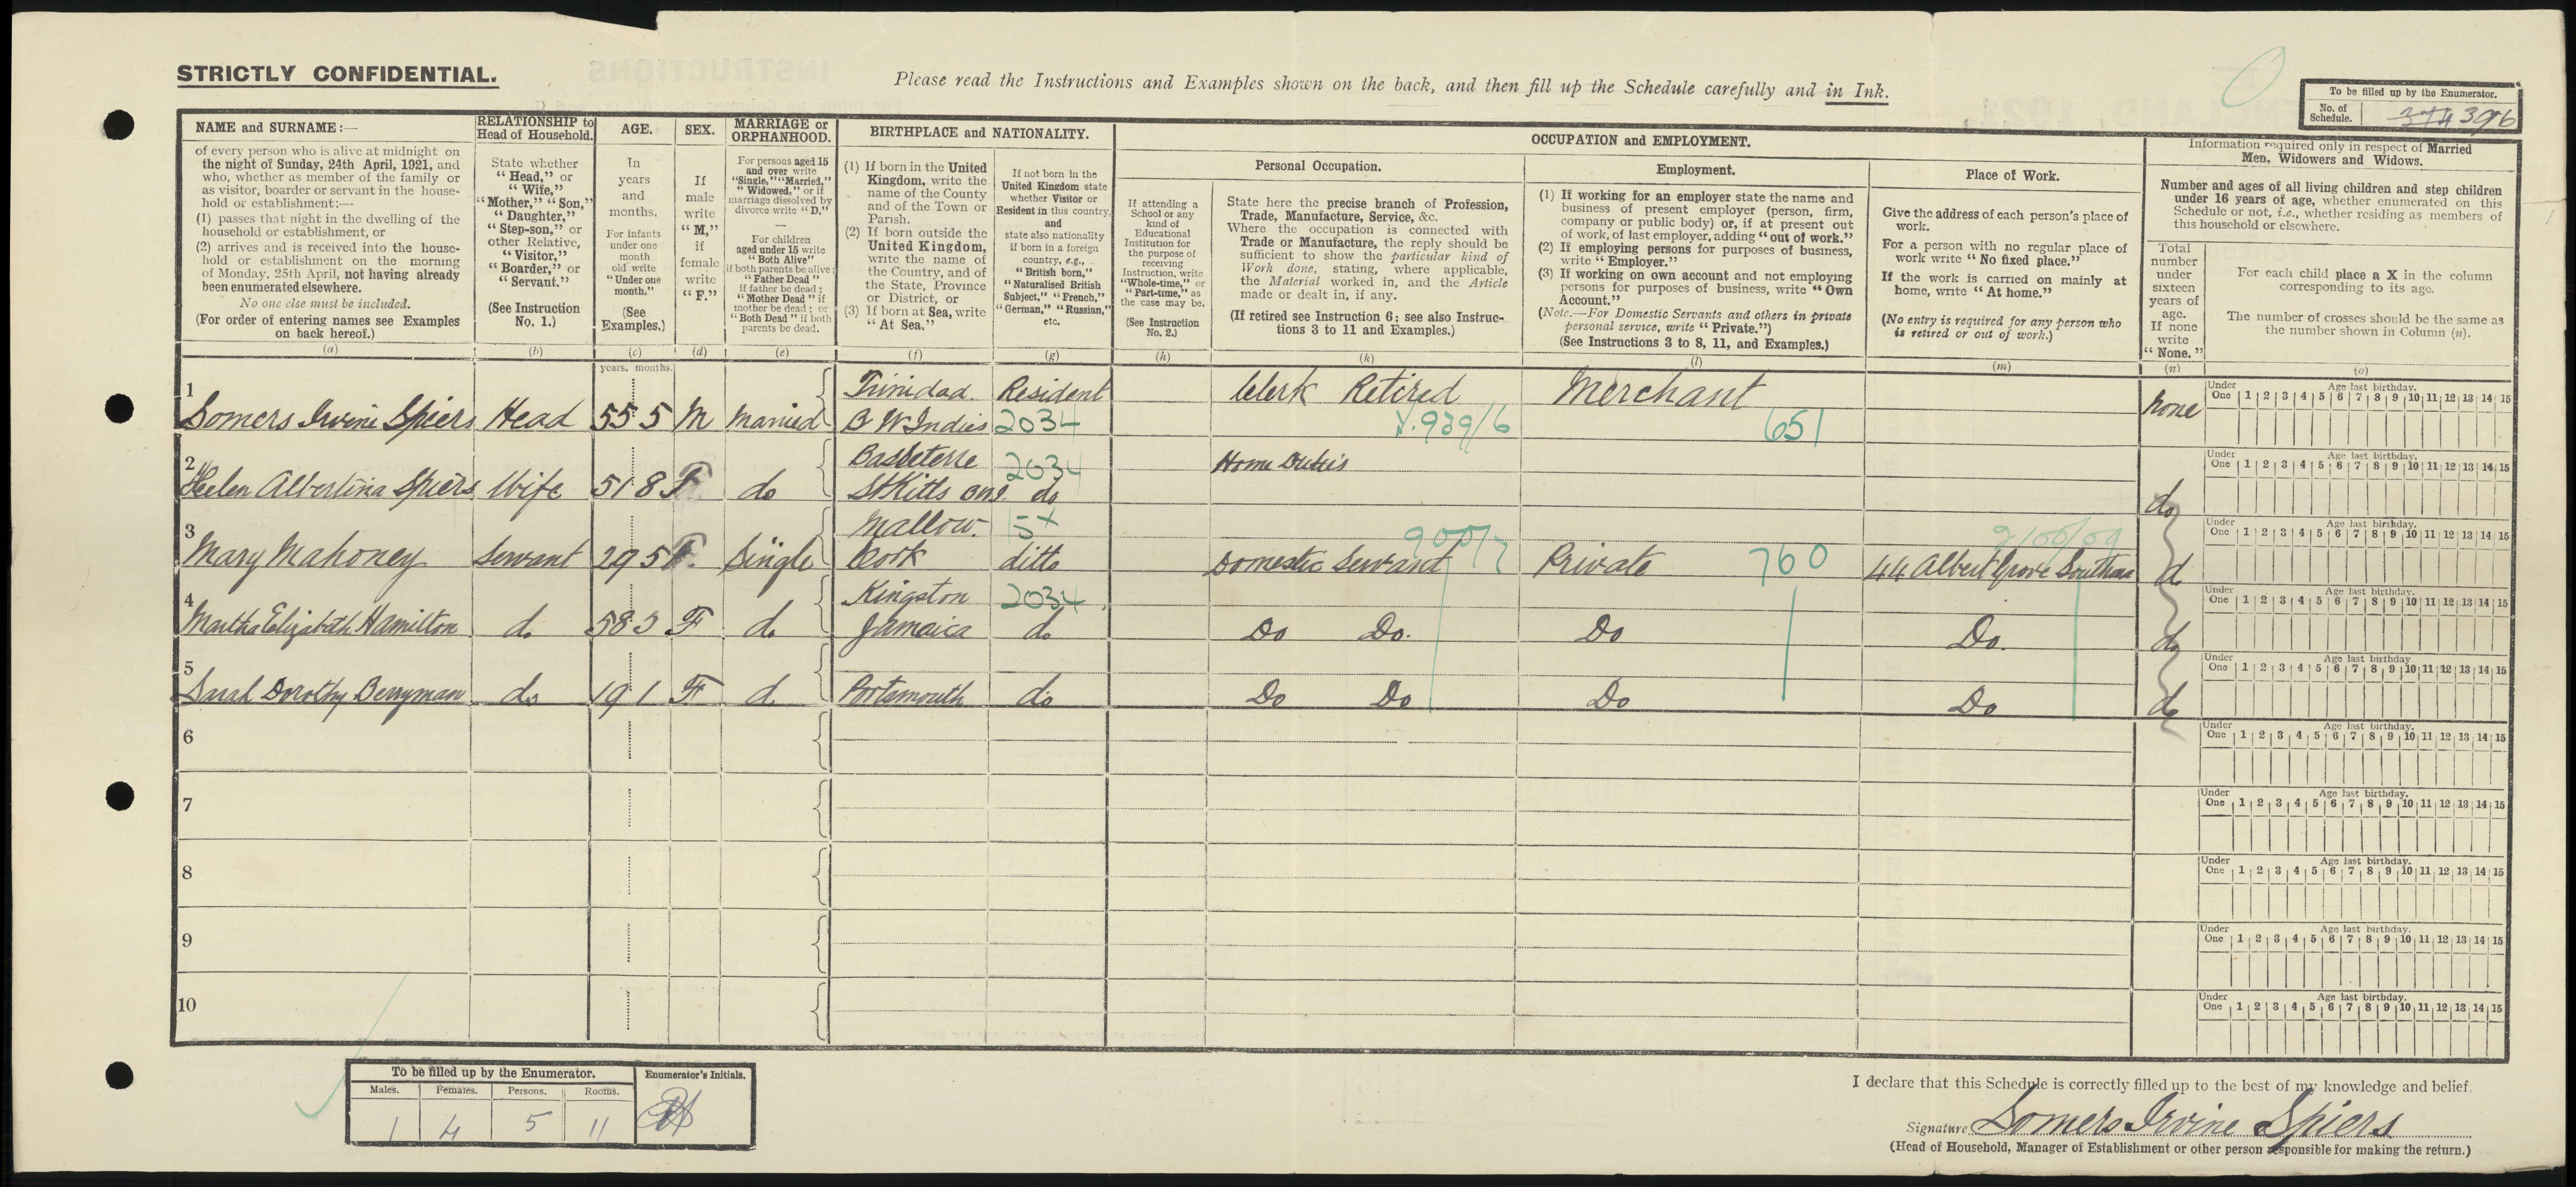 STRICTLY CONFIDENTIAL.
Please read the Instructions and Examples shown on the back, and then fill up the Schedule carefully and in Ink.
To be filled up by the Enumerator.
No. of Schedule. 374 396
NAME and SURNAME:—
of every person who is alive at midnight on
the night of Sunday, 24th April, 1921, and
who, whether as member of the family or
as visitor, boarder or servant in the house-
hold or establishment:—
(1) passes that night in the dwelling of the
household or establishment, or
(2) arrives and is received into the house-
hold or establishment on the morning
of Monday, 25th April, not having already
been enumerated elsewhere.
No one else must be included.
(For order of entering names see Examples
on back hereof.)
(a)
RELATIONSHIP to
Head of Household.
State whether
"Head," or
"Wife,"
"Mother," "Son,"
"Daughter,"
"Step-son," or
other Relative,
"Visitor,"
"Boarder," or
"Servant."
(See Instruction
No. 1.)
(b)
AGE.
In
years
and
months.
For infants
under one
month
old write
"Under one
month."
(See
Examples.)
(c)
SEX.
If
male
write
"M,"
if
female
write
"F."
(d)
MARRIAGE or
ORPHANHOOD.
For persons aged 15
and over write
"Single," "Married,"
"Widowed," or if
marriage dissolved by
divorce write "D."
—
For children
aged under 15 write
"Both Alive"
if both parents be alive;
"Father Dead"
if father be dead;
"Mother Dead" if
mother be dead; or
"Both Dead" if both
parents be dead.
(e)
BIRTHPLACE and NATIONALITY.
(1) If born in the United
Kingdom, write the
name of the County
and of the Town or
Parish.
(2) If born outside the
United Kingdom,
write the name of
the Country, and of
the State, Province
or District, or
(3) If born at Sea, write
"At Sea."
(f)
If not born in the
United Kingdom state
whether Visitor or
Resident in this country,
and
state also nationality
if born in a foreign
country, e.g.,
"British born,"
"Naturalised British
Subject," "French,"
"German," "Russian,"
etc.
(g)
OCCUPATION and EMPLOYMENT.
If attending a
School or any
kind of
Educational
Institution for
the purpose of
receiving
Instruction, write
"Whole-time," or
"Part-time," as
the case may be.
(See Instruction
No. 2.)
(h)
Personal Occupation.
State here the precise branch of Profession,
Trade, Manufacture, Service, &c.
Where the occupation is connected with
Trade or Manufacture, the reply should be
sufficient to show the particular kind of
Work done, stating, where applicable,
the Material worked in, and the Article
made or dealt in, if any.
(If retired see Instruction 6; see also Instruc-
tions 3 to 11 and Examples.)
(k)
Employment.
(1) If working for an employer state the name and
business of present employer (person, firm,
company or public body) or, if at present out
of work, of last employer, adding "out of work."
(2) If employing persons for purposes of business,
write "Employer."
(3) If working on own account and not employing
persons for purposes of business, write "Own
Account."
(Note.—For Domestic Servants and others in private
personal service, write "Private.")
(See Instructions 3 to 8, 11, and Examples.)
(l)
Place of Work.
Give the address of each person's place of
work.
For a person with no regular place of
work write "No fixed place."
If the work is carried on mainly at
home, write "At home."
(No entry is required for any person who
is retired or out of work.)
(m)
Information required only in respect of Married
Men, Widowers and Widows.
Number and ages of all living children and step children
under 16 years of age, whether enumerated on this
Schedule or not, i.e., whether residing as members of
this household or elsewhere.
Total
number
under
sixteen
years of
age.
If none
write
"None."
(n)
For each child place a X in the column
corresponding to its age.
The number of crosses should be the same as
the number shown in Column (n).
(o)
years. months.
1 Somers Irvine Spiers Head 55 5 M Married Trinidad B W Indies Resident 2034 Clerk Retired 939/6 Merchant 651 none
Under One Age last birthday. 1 2 3 4 5 6 7 8 9 10 11 12 13 14 15
2 Helen Albertina Spiers Wife 51 8 F do Basseterre St Kitts 2034 do Home Duties do
Under One Age last birthday. 1 2 3 4 5 6 7 8 9 10 11 12 13 14 15
3 Mary Mahoney Servant 29 5 F. Single Mallow. Cork 15+ ditto Domestic Servant 900/7 Private 760 44 Albert Grove Southsea do
Under One Age last birthday. 1 2 3 4 5 6 7 8 9 10 11 12 13 14 15
4 Martha Elizabeth Hamilton do 58 5 F do Kingston Jamaica 2034 do Do Do. Do Do. do
Under One Age last birthday. 1 2 3 4 5 6 7 8 9 10 11 12 13 14 15
5 Sarah Dorothy Berryman do 19 1 F do Portsmouth do Do Do Do Do do
Under One Age last birthday. 1 2 3 4 5 6 7 8 9 10 11 12 13 14 15
6
Under One Age last birthday. 1 2 3 4 5 6 7 8 9 10 11 12 13 14 15
7
Under One Age last birthday. 1 2 3 4 5 6 7 8 9 10 11 12 13 14 15
8
Under One Age last birthday. 1 2 3 4 5 6 7 8 9 10 11 12 13 14 15
9
Under One Age last birthday. 1 2 3 4 5 6 7 8 9 10 11 12 13 14 15
10
Under One Age last birthday. 1 2 3 4 5 6 7 8 9 10 11 12 13 14 15
To be filled up by the Enumerator.
Males. Females. Persons. Rooms.
1 4 5 11
Enumerator's Initials.
I declare that this Schedule is correctly filled up to the best of my knowledge and belief.
Signature Somers Irvine Spiers
(Head of Household, Manager of Establishment or other person responsible for making the return.)